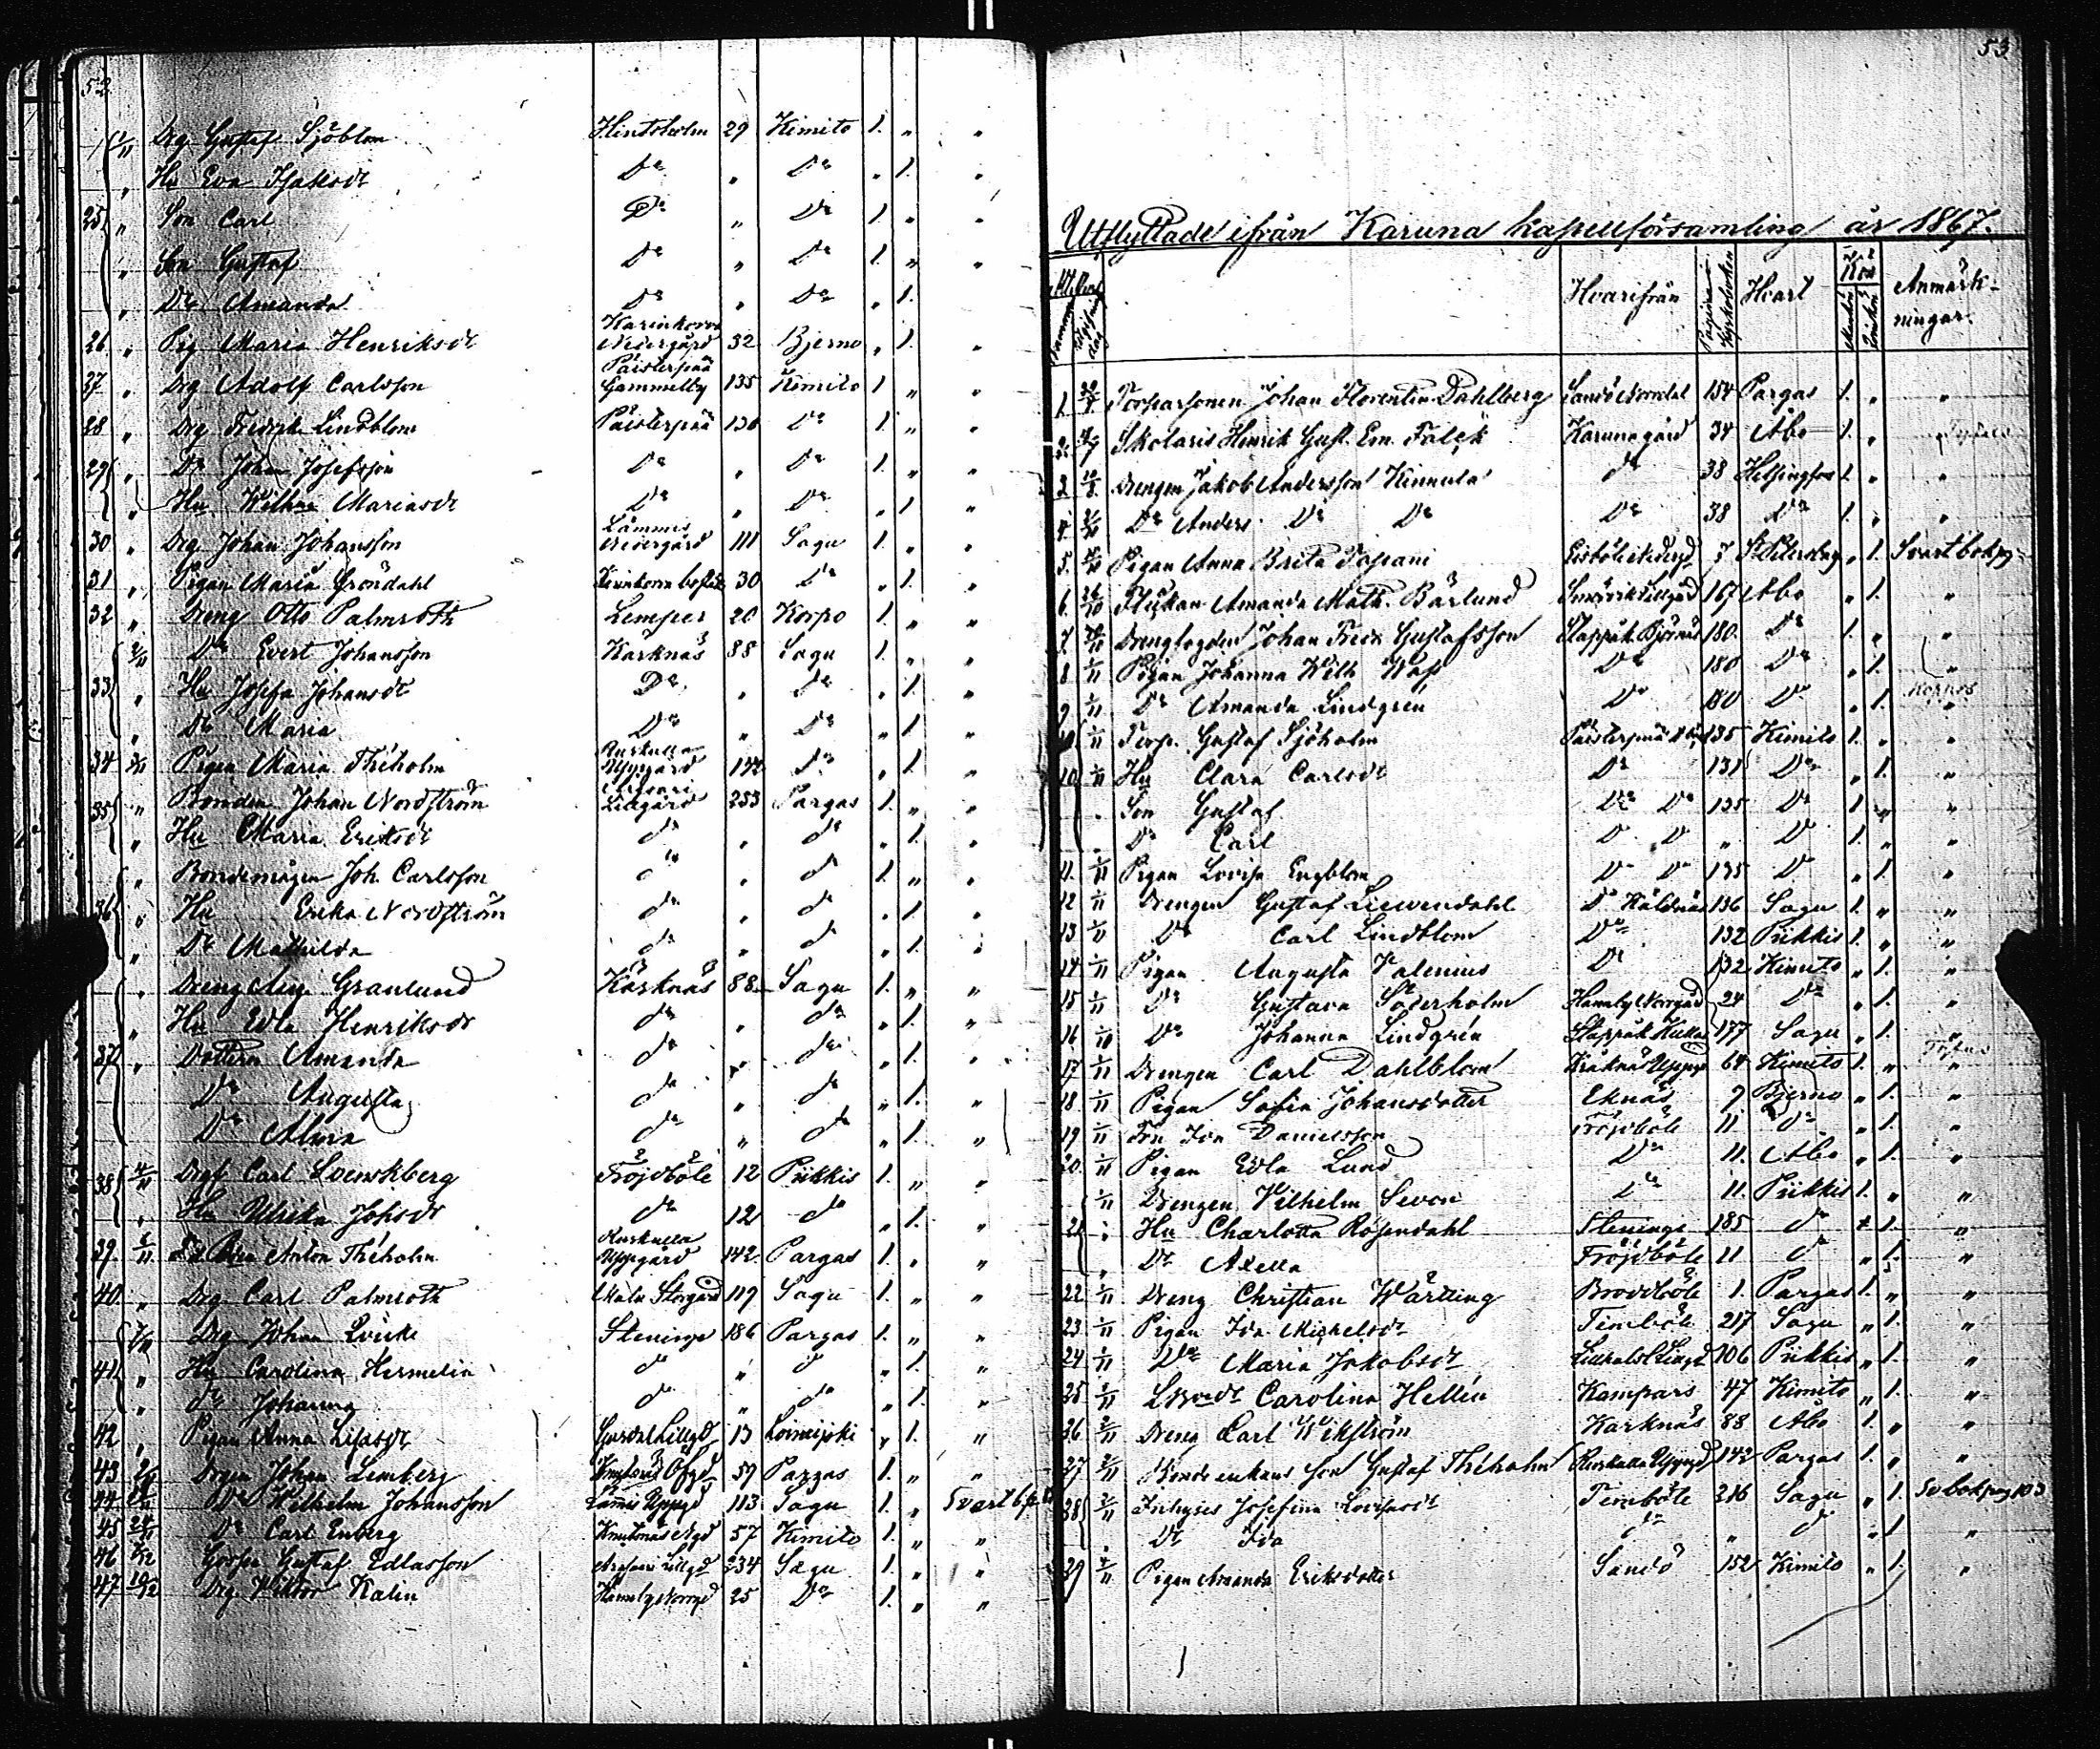 52
1/11 Drg Gustaf Sjöblom Hintsholm 29 Kimito 1. " "
" Hu Eva Isaksdr Do " Do " 1. "
25 " Son Carl Do " Do 1 " "
" Son Gustaf Do " Do 1 " "
" Dr Amanda Do " Do " 1. "
26 " Pig Maria Henriksdr Nedergård 32 Bjerno " 1. "
27 " Drg Adolf Carlsson Päisterpää Gammelby 135 Kimito 1 " "
28 " Drg Fredrik Lindblom Päisterpää 130 Do 1 " "
29 " Do Johan Josefsson Do " Do 1 " "
" Hu Wilhna Mariasdr Do " Do " 1 "
30 " Drg Johan Johansson Lämmis Nedergård 111 Sagu 1. " "
31 " Pigan Maria Gröndahl 30 Do " 1. "
32 " Dreng Otto Palmroth Lemper 20 Korpo 1. " "
2/11 Do Evert Johansson Karknäs 88 Sagu 1. " "
33 " Hu Josefa Johansdr Do " do " 1. "
" Dr Maria Do " Do " 1 "
34 Pigan Maria Théholm Ruskulla Uppgård 142 do " 1 "
35 " Bonden Johan Nordström Lillgård 233 Pargas 1. " "
" Hu Maria Eriksdr do " do " 1. "
" Bondemågen Joh. Carlsson do " do 1. " "
36 " Hu Erika Nordström do " do " 1. "
" Dr Mathilda do " do " 1. "
" Dreng Aug Granlund Kärknäs 88 Sagu 1. " "
" Hu Edla Henriksdr do " do " 1. "
37 " Dottern Amanda do " do " 1. "
Do Augusta do " do " 1. "
Do Alma do " do " 1. "
38 4/11 Drgf Carl Svenskberg Fröjdböle 12 Piikkis 1. " "
" Hu Ulrika Johsdr do 12 do " 1. "
39 Anton Théholm Ruskulla Uppgård 142 Pargas 1. " "
40 " Drg Carl Palmroth Storgård 119 Sagu 1. " "
7/11 Drg Johan Steninge 186 Pargas 1. " "
41 " Hu Carolina Hermelin do " do " 1. "
" dr Johanna do " do " 1. "
42 " Pigan Anna Lisasdr 13 Loimijoki " 1. "
43 Drgen Johan Lemberg 59 Pargas 1. " "
44 Do Wilhelm Johansson Lämmis Uppgd 113 Sagu 1. " Svart b.
45 24/11 Do Carl Enberg Knutnäs Ngd 57 Kimito 1. " "
46 Gossen Gustaf Edlasson Lillgd 234 Sagu 1. " "
47 Drg Wiktor Kalin Hamnby Norrgd 25 Do 1. " "
53
Utflyttade ifrån Karuna kapellförsamling år 1867.
Hvarifrån Hvart Kön Anmärk-
ningar.
1. Torparsonen Johan Florentin Dahlberg Sandö Norrdal 154 Pargas 1. " "
2. Skolaris Henrik Gust. Em. Falck Karunagård 34 Åbo 1. "
3 Drengen Jakob Andersson Kinnula do 38 Helsingfors 1. " "
4. Do Anders Do Do Do 38 Do 1. " "
5. Pigan Anna Brita 7 St Petersburg " 1. Svartbok pg
6. Flickan Amanda Math. Bärlund Lillgård 167 Åbo " 1. "
7. Drengfogden Johan Fredr Gustafsson Stappåk Björnäs 180. Do 1. " "
8 1/11 Pigan Johanna Wilh Wass Do 180 Do " 1. "
9 1/11 Do Amanda Lindgren Do 180 Do " 1. "
1/11 Torp. Gustaf Sjöholm Päisterpää 135 Kimito 1. " "
10. 1/11 Hu Clara Carlsdr Do 131 Do " 1. "
" Son Gustaf Do Do 135 Do 1. " "
" Do Carl Do Do " Do 1. " "
11. 1/11 Pigan Lovisa Engblom Do Do 135 Do " 1. "
12 1/11 Drengen Gustaf Liewendahl Do Håldnäs 136 Sagu 1. " "
13 1/11 Do Carl Lindblom Do 132 Piikkis 1. " "
14 1/11 Pigan Augusta Valenius Do 132 Kimito " 1. "
15 1/11 Do Gustava Söderholm Hamnby Norrgård 24 Do " 1. "
16 Do Johanna Lindgrén Stappåk 177 Sagu " 1. "
17 1/11 Drengen Carl Dahlblom Uppgd 64 Kimito 1. " "
18. 1/11 Pigan Sofia Johansdotter Eknäs 9 Bjerno " 1. "
19 1/11 Ida Danielsson Fröjdböle 11 Do " 1. "
20. 1/11 Pigan Edla Lund Do 11. Åbo " 1. "
1/11 Drengen Wilhelm Sevon Do 11. Piikkis 1. " "
21 " Hu Charlotta Rosendahl Steninge 185 do " 1. "
" Dr Axella Fröjdböle 11 do " 1. "
22 1/11 Dreng Christian Wårting Broddböle 1. Pargas 1. " "
23 1/11 Pigan Ida Michelsdr Timböle 217 Sagu " 1. "
24 1/11 Do Maria Jakobsdr 106 Piikkis " 1. "
25 Carolina Hellén Kampars 47 Kimito " 1. "
26 2/11 Dreng Carl Wikström Karknäs 88 Åbo 1. " "
27 2/11 Bonde enkans son Gustaf Théholm Ruskulla Uppgd 142 Pargas 1. " "
28 2/11 Inhyses Josefina Lovisasdr Timböle 216 Sagu " 1. Sv bok pag 103
" Dr Ida do " do " 1. "
29 Pigan Amanda Eriksdotter Sandö 152 Kimito " 1. "